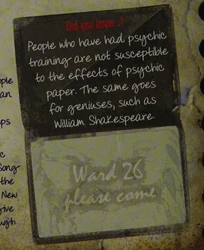 Did you know..?
People who have had psychic
training are not susceptible
to the effects of psychic
paper. The same goes
for geniuses, such as
William Shakespeare.
Ward 26
please come
ople
an
ps
ic
Song
the
New
give
ough